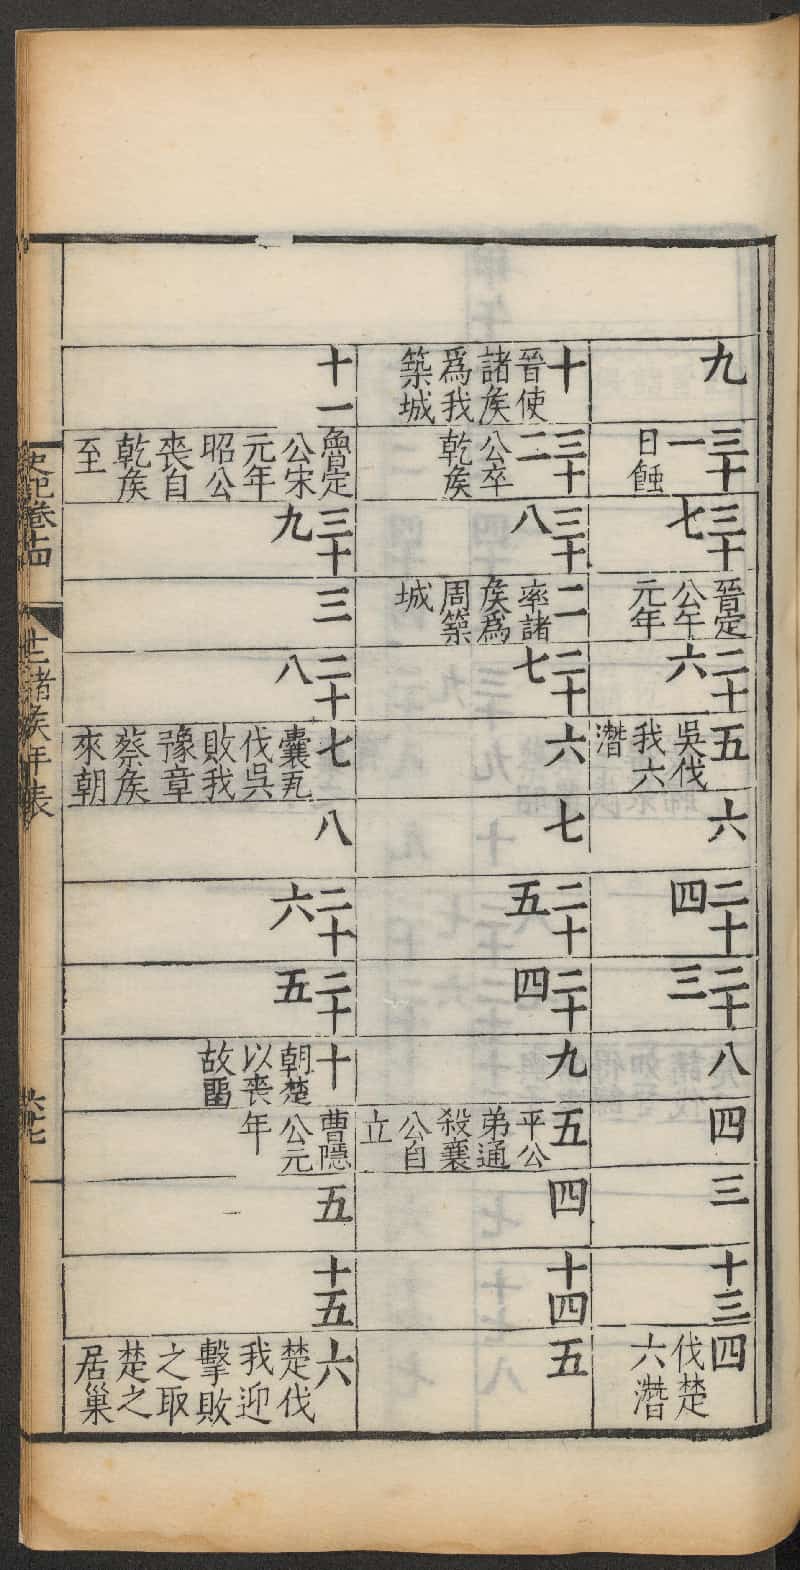 九
三十
一
日蝕
三十
七
晉定
公午
元年
二十
六
五
吳伐
我六
潛
六
二十
四
二十
三
八
四
三
十三
四
伐楚
六潛
十
晉使
諸矦
爲我
築城
三十
二
公卒
乾矦
三十
八
二
率諸
矦爲
周築
城
二十
七
六
七
二十
五
二十
四
九
五
平公
弟通
殺襄
公自
立
四
十四
五
十一
魯定
公宋
元年
昭公
喪自
乾矦
至
三十
九
三
二十
八
七
囊瓦
伐吳
敗我
豫章
蔡矦
來朝
八
二十
六
二十
五
十
朝楚
以喪
故畱
曹隱
公元
年
五
十五
六
楚伐
我迎
擊敗
之取
楚之
居巢
史記卷十四
諸矦年表